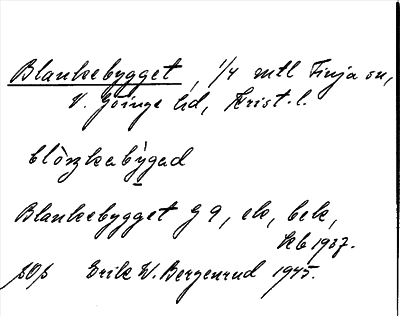 Blankebygget, 1/4 mtl Finja sn,
V. Göinge hd, Krist. l.
Blankebygget G 9, ek, bek,
Kb 1937.
Erik W. Bergenrud 1945.